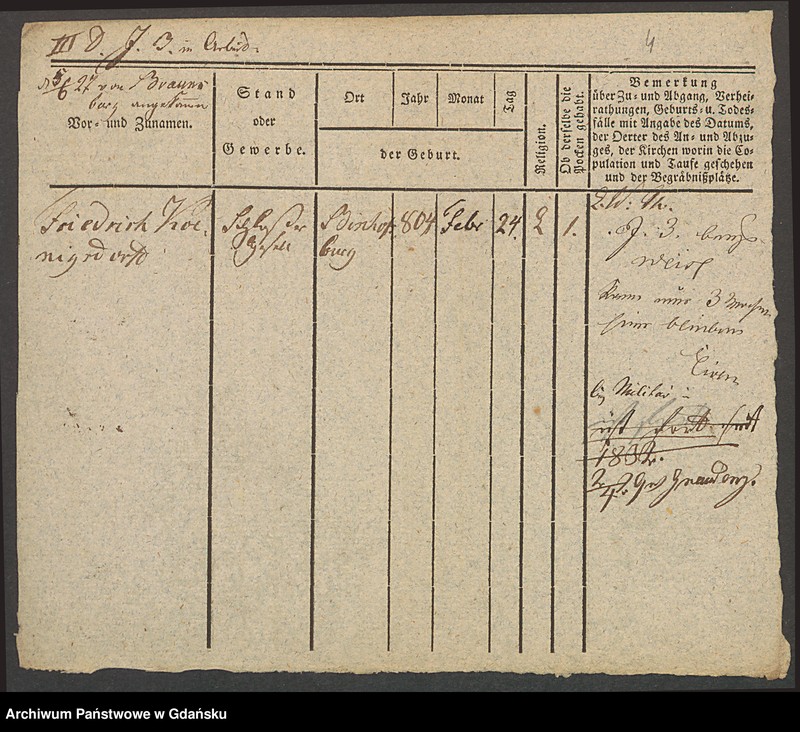 III D. J. 3. in Arbeid.
4
d 5/6 27 von Brauns
berg angekommen
Vor- und Zunamen.
Stand
oder
Gewerbe.
Ort
Jahr
Monat
Tag
der Geburt.
Religion.
Ob derselbe die
Pocken gehabt.
Bemerkung
über Zu- und Abgang, Verhei-
rathungen, Geburts- u. Todes-
fälle mit Angabe des Datums,
der Oerter des An- und Abzu-
ges, der Kirchen worin die Co-
pulation und Taufe geschehen
und der Begräbnißplätze.
Friedrich Koe-
nigsdorff
Schlosser
Gesell
Bischofs
burg
804
Febr
24.
L
1.
J. 3.
weise
Kann nur 3 Wochen
hier bleiben
Militär
ist fort
1832.